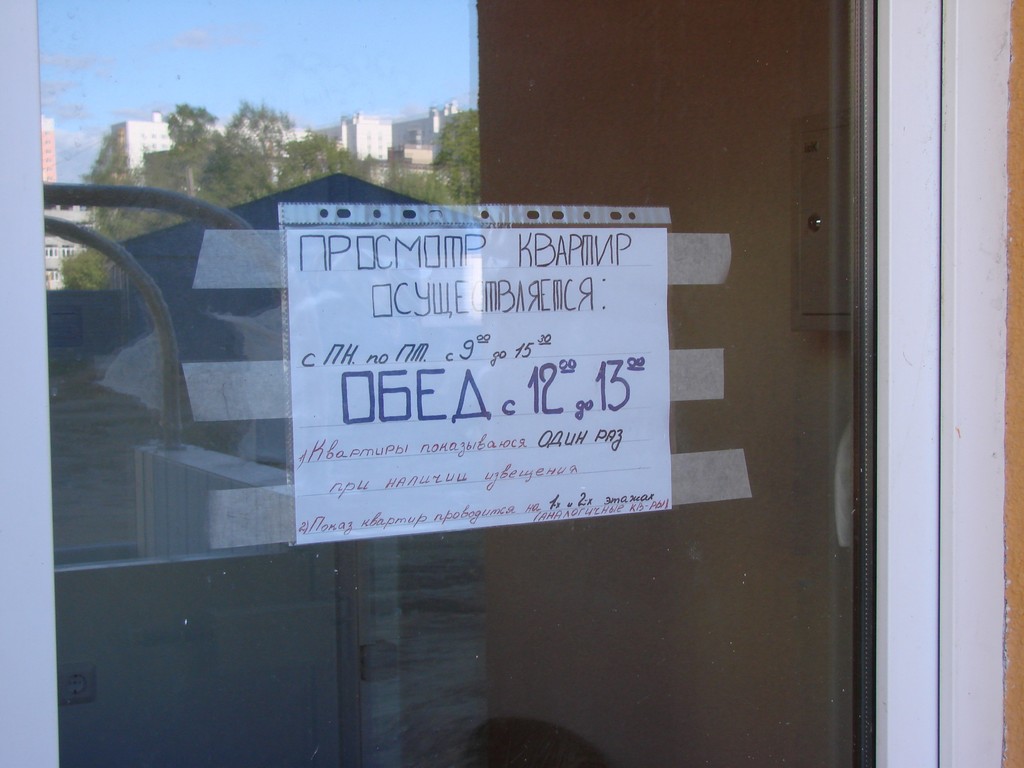 ПРОСМОТР КВАРТИР
ОСУЩЕСТВЛЯЕТСЯ:
с ПН. по ПТ. с 9⁰⁰ до 15³⁰
ОБЕД с 12⁰⁰ до 13⁰⁰
1) Квартиры показываюся ОДИН РАЗ
при наличии извещения
2) Показ квартир проводится на 1х и 2-х этажах
(АНАЛОГИЧНЫЕ КВ-РЫ)